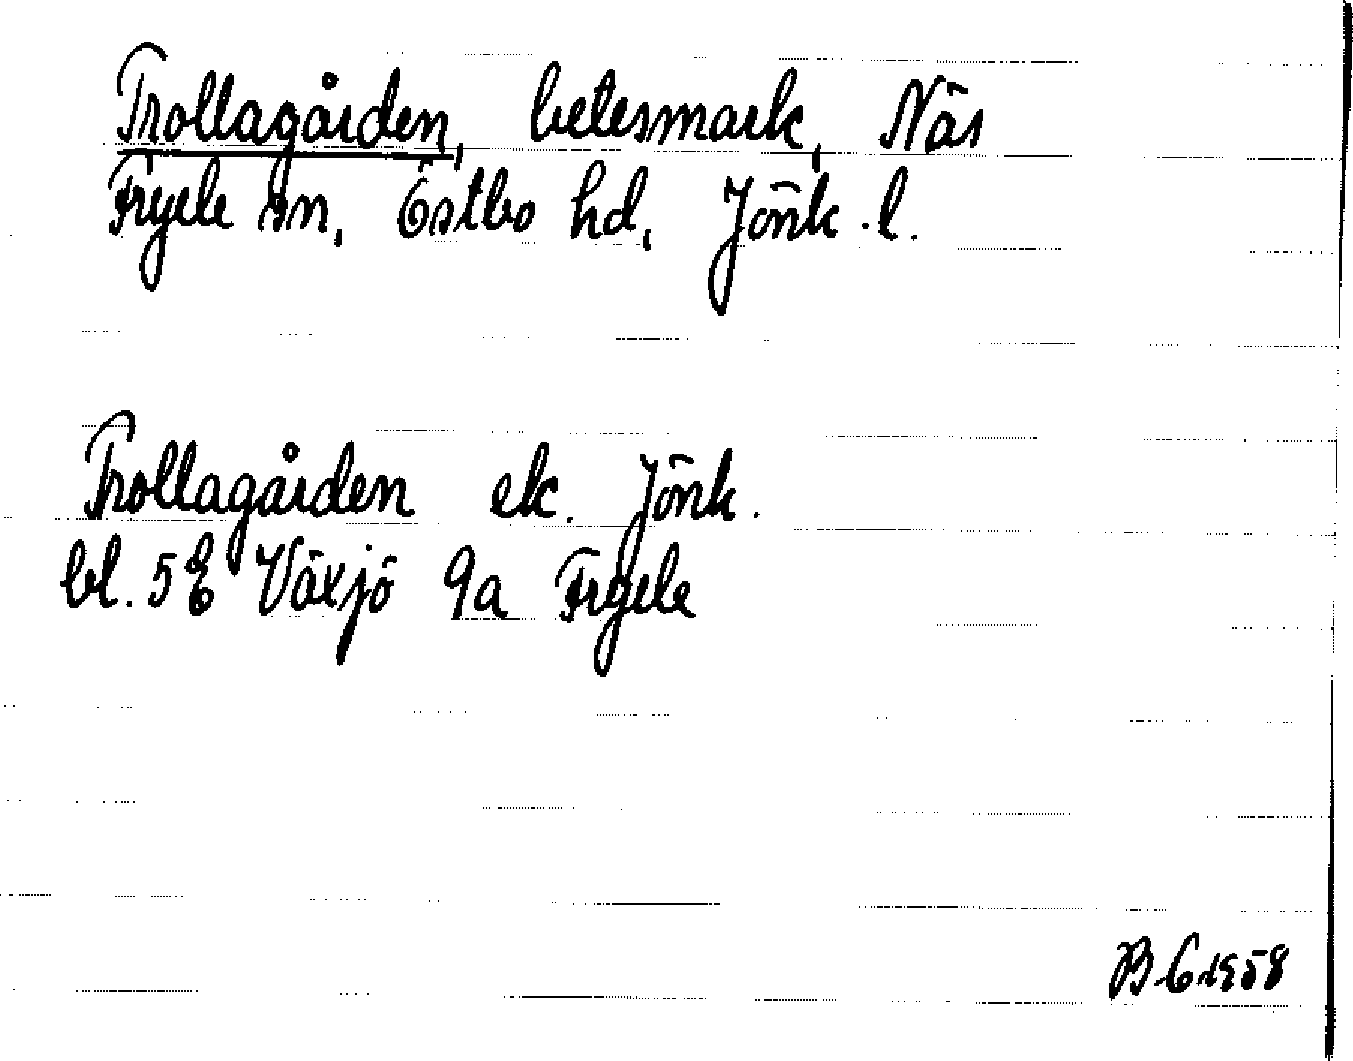 Trollagården, betesmark, Näs
Fryele sn, Östbo hd, Jönk. l.
Trollagården ek. Jönk.
bl. 5E Växjö 9a Fryele
BG 1958